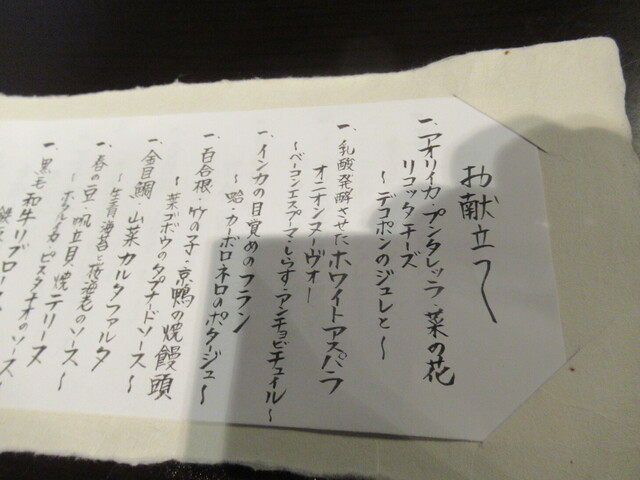 お献立
一、アオリイカ・プンタレッラ・菜の花
リコッタチーズ
〜デコポンのジュレと〜
一、乳酸発酵させたホワイトアスパラ
オニオンヌーヴォー
〜ベーコンエスプーマ・しらす・アンチョビチュイル〜
一、インカの目覚めのフラン
〜蛤・カーボロネロのポタージュ〜
一、百合根・竹の子・京鴨の焼饅頭
〜葉ゴボウのタプナードソース〜
一、金目鯛 山菜 カルタファルタ
〜生青海苔と桜海老のソース〜
一、春の豆・帆立貝・焼テリーヌ
〜ホタルイカ・ピスタチオのソース〜
一、黒毛和牛リブロース